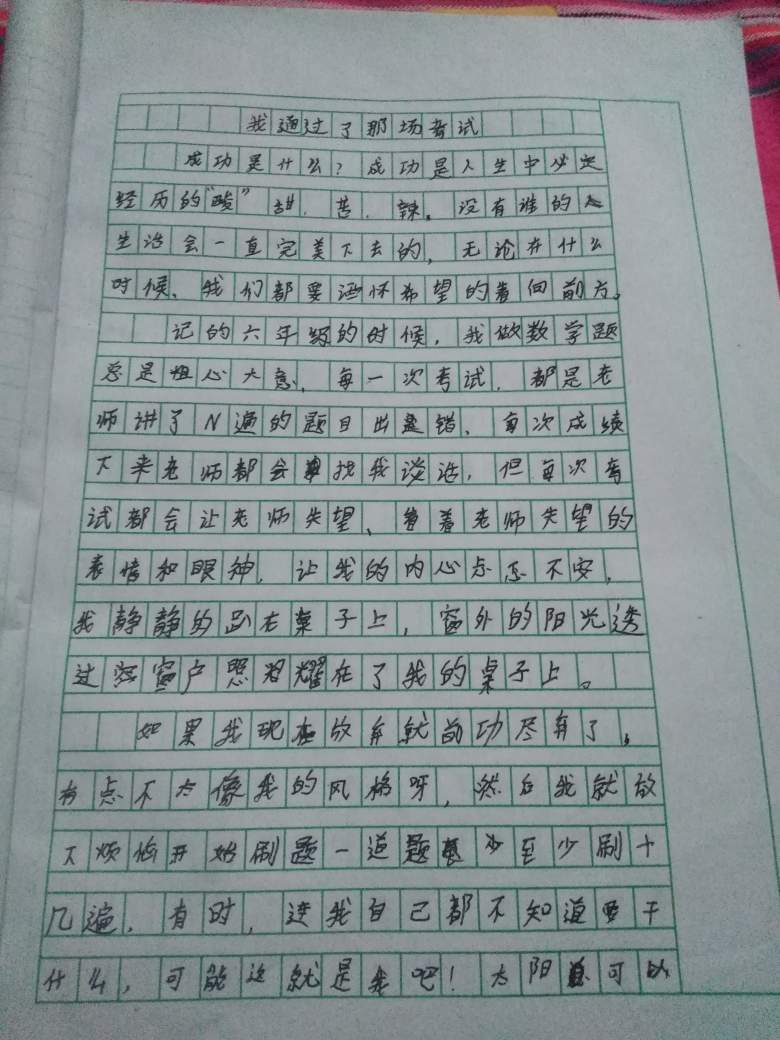 我通过了那场考试
成功是什么？成功是人生中必定
经历的“酸”甜、苦、辣。没有谁的人
生活会一直完美下去的，无论在什么
时候、我们都要满怀希望的看向前方。
记的六年级的时候，我做数学题
总是粗心大意，每一次考试，都是老
师讲了N遍的题目出错、每次成绩
下来老师都会找我谈话，但每次考
试都会让老师失望、看着老师失望的
表情和眼神，让我的内心忐忑不安，
我静静的趴在桌子上，窗外的阳光透
过窗户照耀在了我的桌子上。
如果我现在放弃就前功尽弃了，
有点不太像我的风格呀，然后我就放
下烦恼开始刷题一道题至少刷十
几遍，有时，连我自己都不知道要干
什么，可能这就是我吧！太阳可以